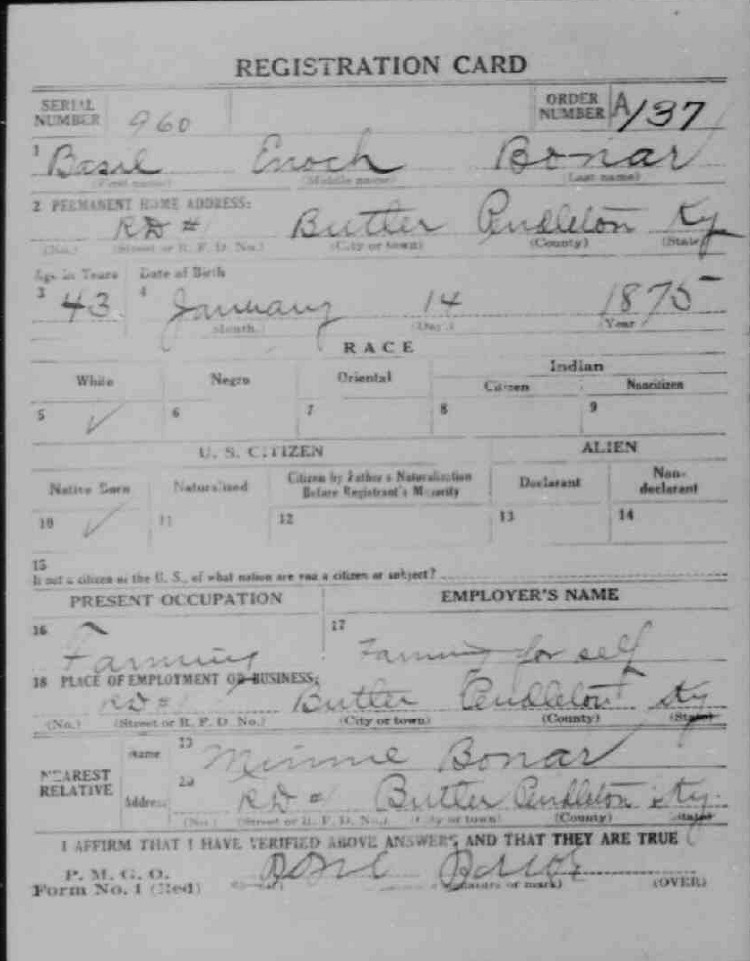 REGISTRATION CARD
SERIAL NUMBER 960 ORDER NUMBER A 137
1 Basil Enoch Bonar
(First name) (Middle name) (Last name)
2 PERMANENT HOME ADDRESS:
RD # Butler Pendleton Ky
(No.) (Street or R. F. D. No.) (City or town) (County) (State)
Age in Years Date of Birth
3 43 4 January 14 1875
Month. (Day.) Year
RACE
White Negro Oriental Indian
Citizen Noncitizen
5 ✓ 6 7 8 9
U. S. CITIZEN ALIEN
Native Born Naturalized Citizen by Father's Naturalization Before Registrant's Majority Declarant Non-declarant
10 ✓ 11 12 13 14
15
If not a citizen of the U. S., of what nation are you a citizen or subject?
PRESENT OCCUPATION EMPLOYER'S NAME
16 Farming 17 Farming for self
18 PLACE OF EMPLOYMENT OR BUSINESS:
RD # Butler Pendleton Ky
(No.) (Street or R. F. D. No.) (City or town) (County) (State)
NEAREST RELATIVE
Name 19 Minnie Bonar
Address 20 RD # Butler Pendleton Ky.
(No.) (Street or R. F. D. No.) (City or town) (County) (State)
I AFFIRM THAT I HAVE VERIFIED ABOVE ANSWERS AND THAT THEY ARE TRUE
P. M. G. O.
Form No. 1 (Red) (Signature or mark) (OVER)